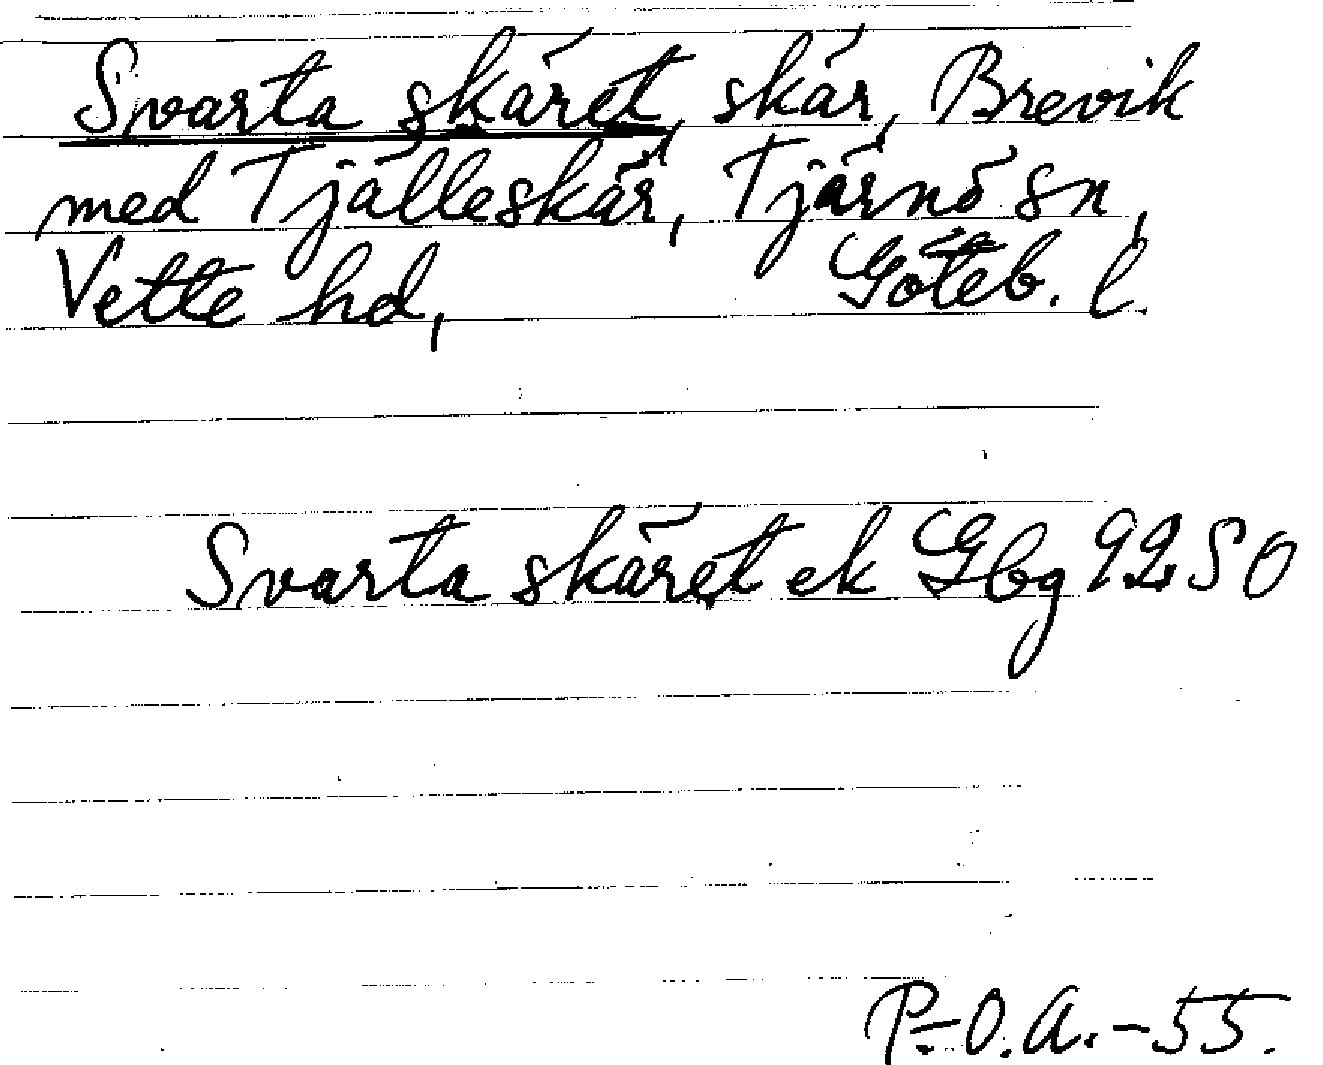 Svarta skäret, skär, Brevik
med Tjälleskär, Tjärnö sn,
Vette hd, Göteb. l.
Svarta skäret ek Gbg 92 SO
P-O.A.-55.